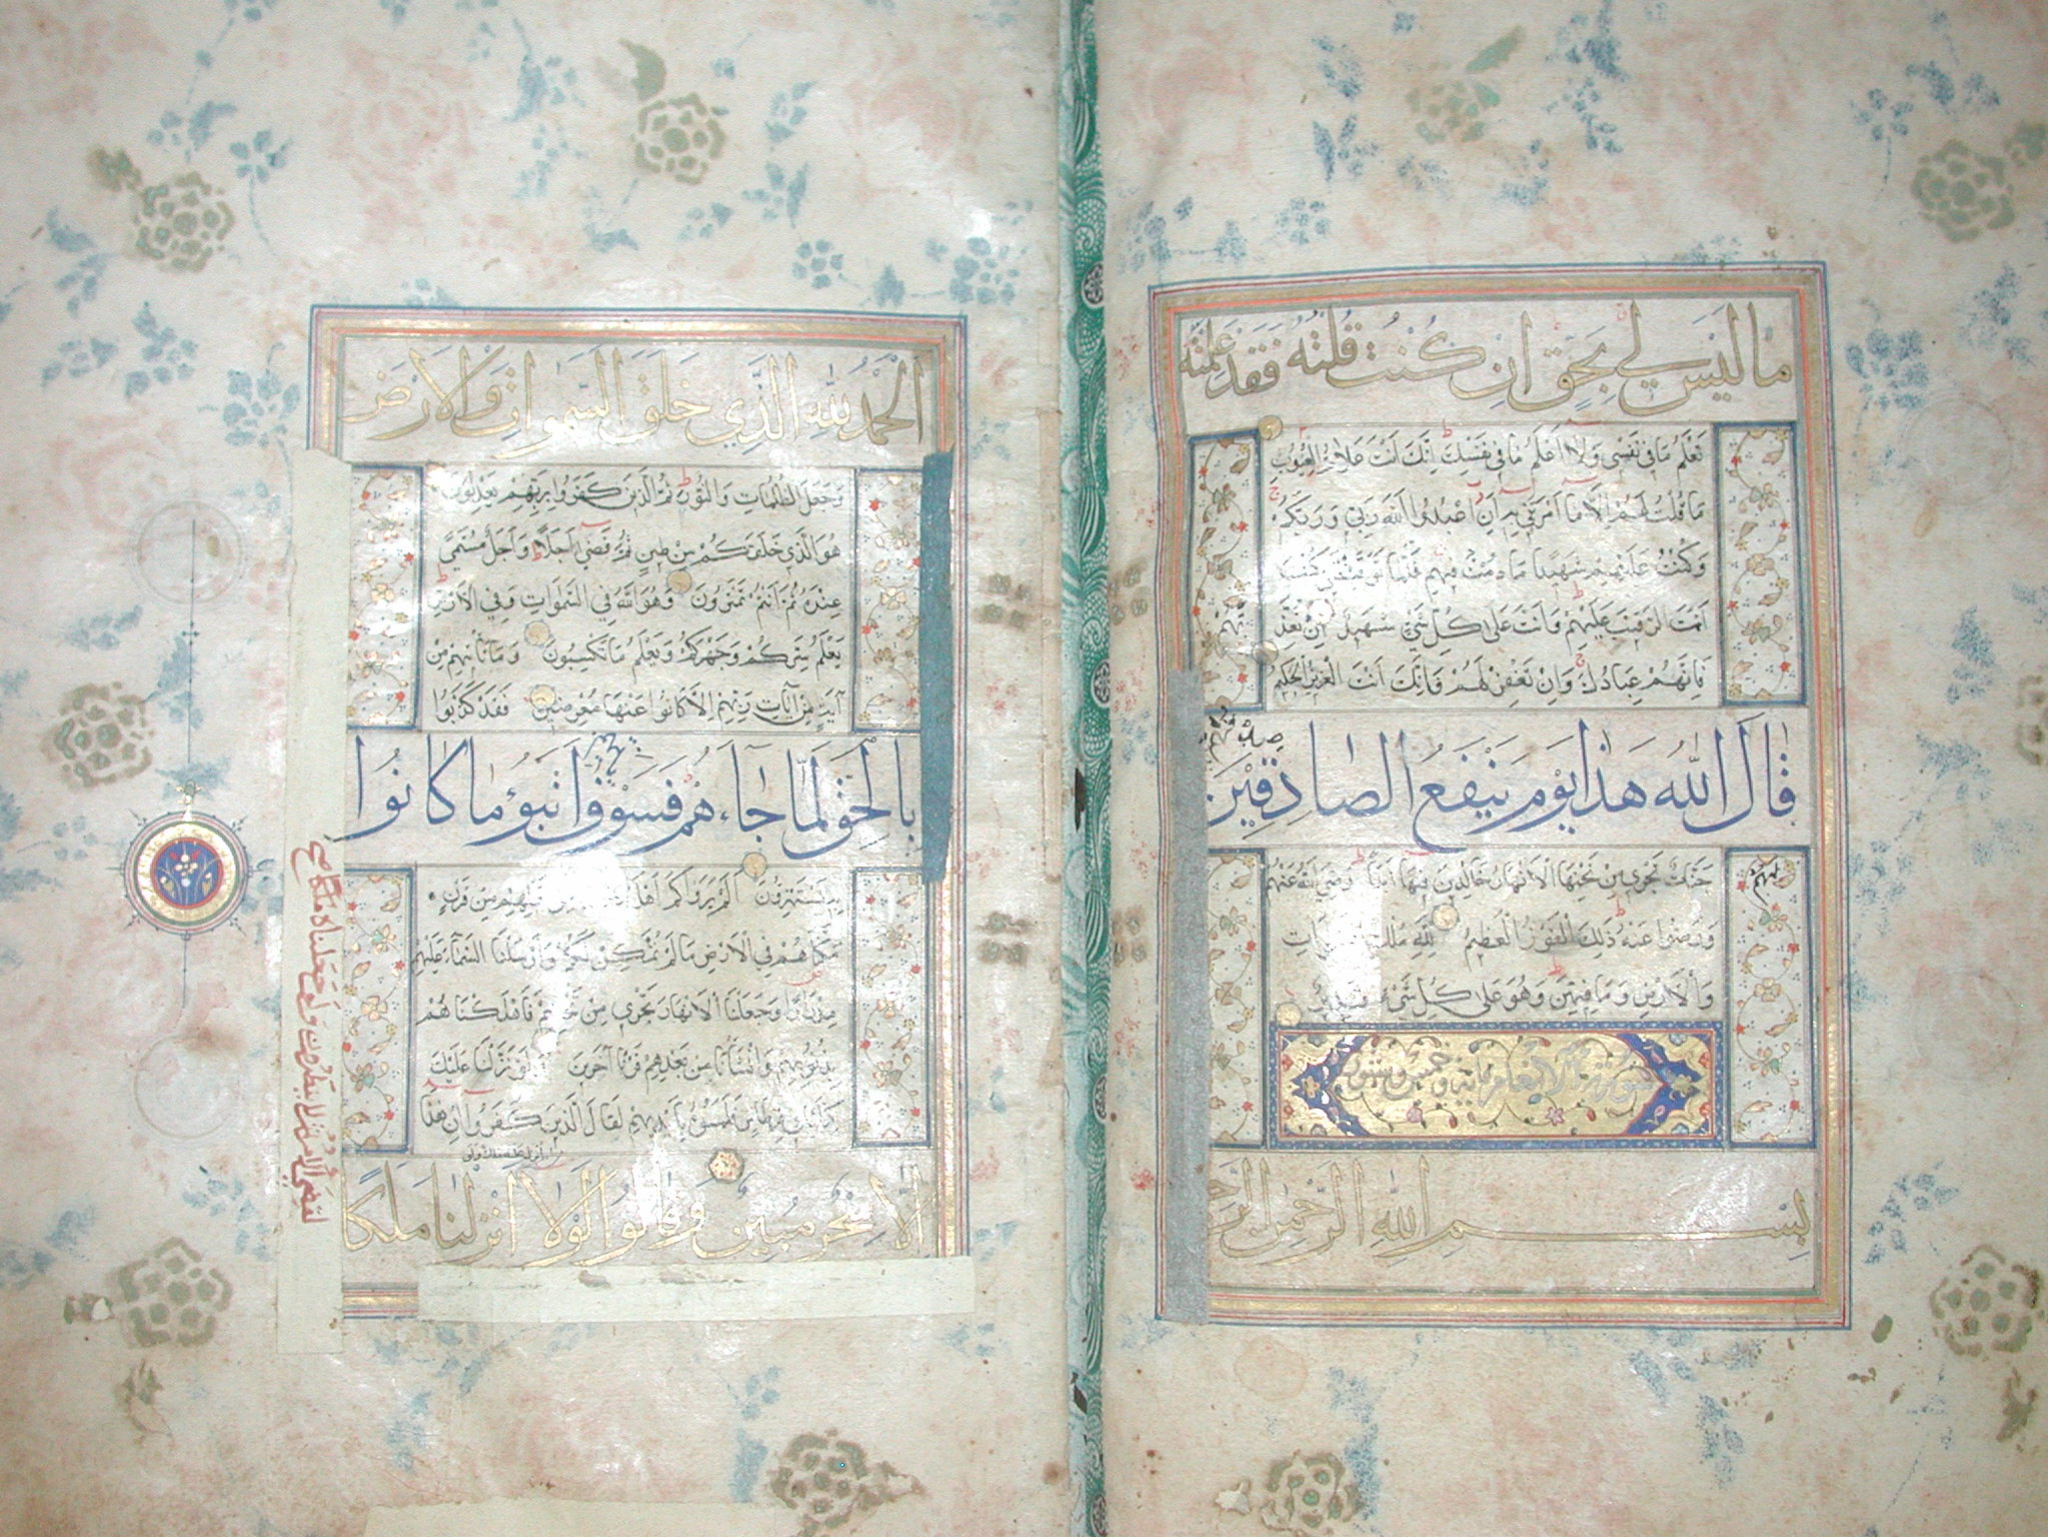 ما لَيْسَ لِي بِحَقٍّ اِنْ كُنْتُ قُلْتُهُ فَقَدْ عَلِمْتَهُ
تَعْلَمُ مَا فِي نَفْسِي وَلَا اَعْلَمُ مَا فِي نَفْسِكَ اِنَّكَ اَنْتَ عَلَّامُ الْغُيُوبِ
مَا قُلْتُ لَهُمْ اِلَّا مَا اَمَرْتَنِي بِهِ اَنِ اعْبُدُوا اللّٰهَ رَبِّي وَرَبَّكُمْ
وَكُنْتُ عَلَيْهِمْ شَهِيدًا مَا دُمْتُ فِيهِمْ فَلَمَّا تَوَفَّيْتَنِي كُنْتَ
اَنْتَ الرَّقِيبَ عَلَيْهِمْ وَاَنْتَ عَلٰى كُلِّ شَيْءٍ شَهِيدٌ اِنْ تُعَذِّ
بْهُمْ
فَاِنَّهُمْ عِبَادُكَ وَاِنْ تَغْفِرْ لَهُمْ فَاِنَّكَ اَنْتَ الْعَزِيزُ الْحَكِيمُ
قَالَ اللّٰهُ هٰذَا يَوْمُ يَنْفَعُ الصَّادِقِينَ
صِدْقُهُمْ
لَهُمْ
جَنَّاتٌ تَجْرِي مِنْ تَحْتِهَا الْاَنْهَارُ خَالِدِينَ فِيهَا اَبَدًا رَضِيَ اللّٰهُ عَنْهُمْ
وَرَضُوا عَنْهُ ذٰلِكَ الْفَوْزُ الْعَظِيمُ لِلّٰهِ مُلْكُ السَّمٰوَاتِ
وَالْاَرْضِ وَمَا فِيهِنَّ وَهُوَ عَلٰى كُلِّ شَيْءٍ قَدِيرٌ
سورة الانعام مایه وخمس وستون
بِسْمِ اللّٰهِ الرَّحْمٰنِ الرَّحِ
اَلْحَمْدُ لِلّٰهِ الَّذِي خَلَقَ السَّمٰوَاتِ وَالْاَرْضَ
وَجَعَلَ الظُّلُمَاتِ وَالنُّورَ ثُمَّ الَّذِينَ كَفَرُوا بِرَبِّهِمْ يَعْدِلُونَ
هُوَ الَّذِي خَلَقَكُمْ مِنْ طِينٍ ثُمَّ قَضٰى اَجَلًا وَاَجَلٌ مُسَمًّى
عِنْدَهُ ثُمَّ اَنْتُمْ تَمْتَرُونَ وَهُوَ اللّٰهُ فِي السَّمٰوَاتِ وَفِي الْاَرْضِ
يَعْلَمُ سِرَّكُمْ وَجَهْرَكُمْ وَيَعْلَمُ مَا تَكْسِبُونَ وَمَا تَأْتِيهِمْ مِنْ
آيَةٍ مِنْ آيَاتِ رَبِّهِمْ اِلَّا كَانُوا عَنْهَا مُعْرِضِينَ فَقَدْ كَذَّبُوا
بِالْحَقِّ لَمَّا جَاءَهُمْ فَسَوْفَ اَنْبٰٓؤُ مَا كَانُوا
يَأْتِيهِمْ
بِهِ يَسْتَهْزِؤُنَ اَلَمْ يَرَوْا كَمْ اَهْلَكْنَا مِنْ قَبْلِهِمْ مِنْ قَرْنٍ
مَكَّنَّاهُمْ فِي الْاَرْضِ مَا لَمْ نُمَكِّنْ لَكُمْ وَاَرْسَلْنَا السَّمَاءَ عَلَيْهِمْ
مِدْرَارًا وَجَعَلْنَا الْاَنْهَارَ تَجْرِي مِنْ تَحْتِهِمْ فَاَهْلَكْنَاهُمْ
بِذُنُوبِهِمْ وَاَنْشَأْنَا مِنْ بَعْدِهِمْ قَرْنًا آخَرِينَ وَلَوْ نَزَّلْنَا عَلَيْكَ
كِتَابًا فِي قِرْطَاسٍ فَلَمَسُوهُ بِاَيْدِيهِمْ لَقَالَ الَّذِينَ كَفَرُوا اِنْ هٰذَا
اِلَّا سِحْرٌ مُبِينٌ وَقَالُوا لَوْلَا اَنْزَلْنَا مَلَكًا
لقضي الامر ثم لا ينظرون ولو جعلناه ملكا